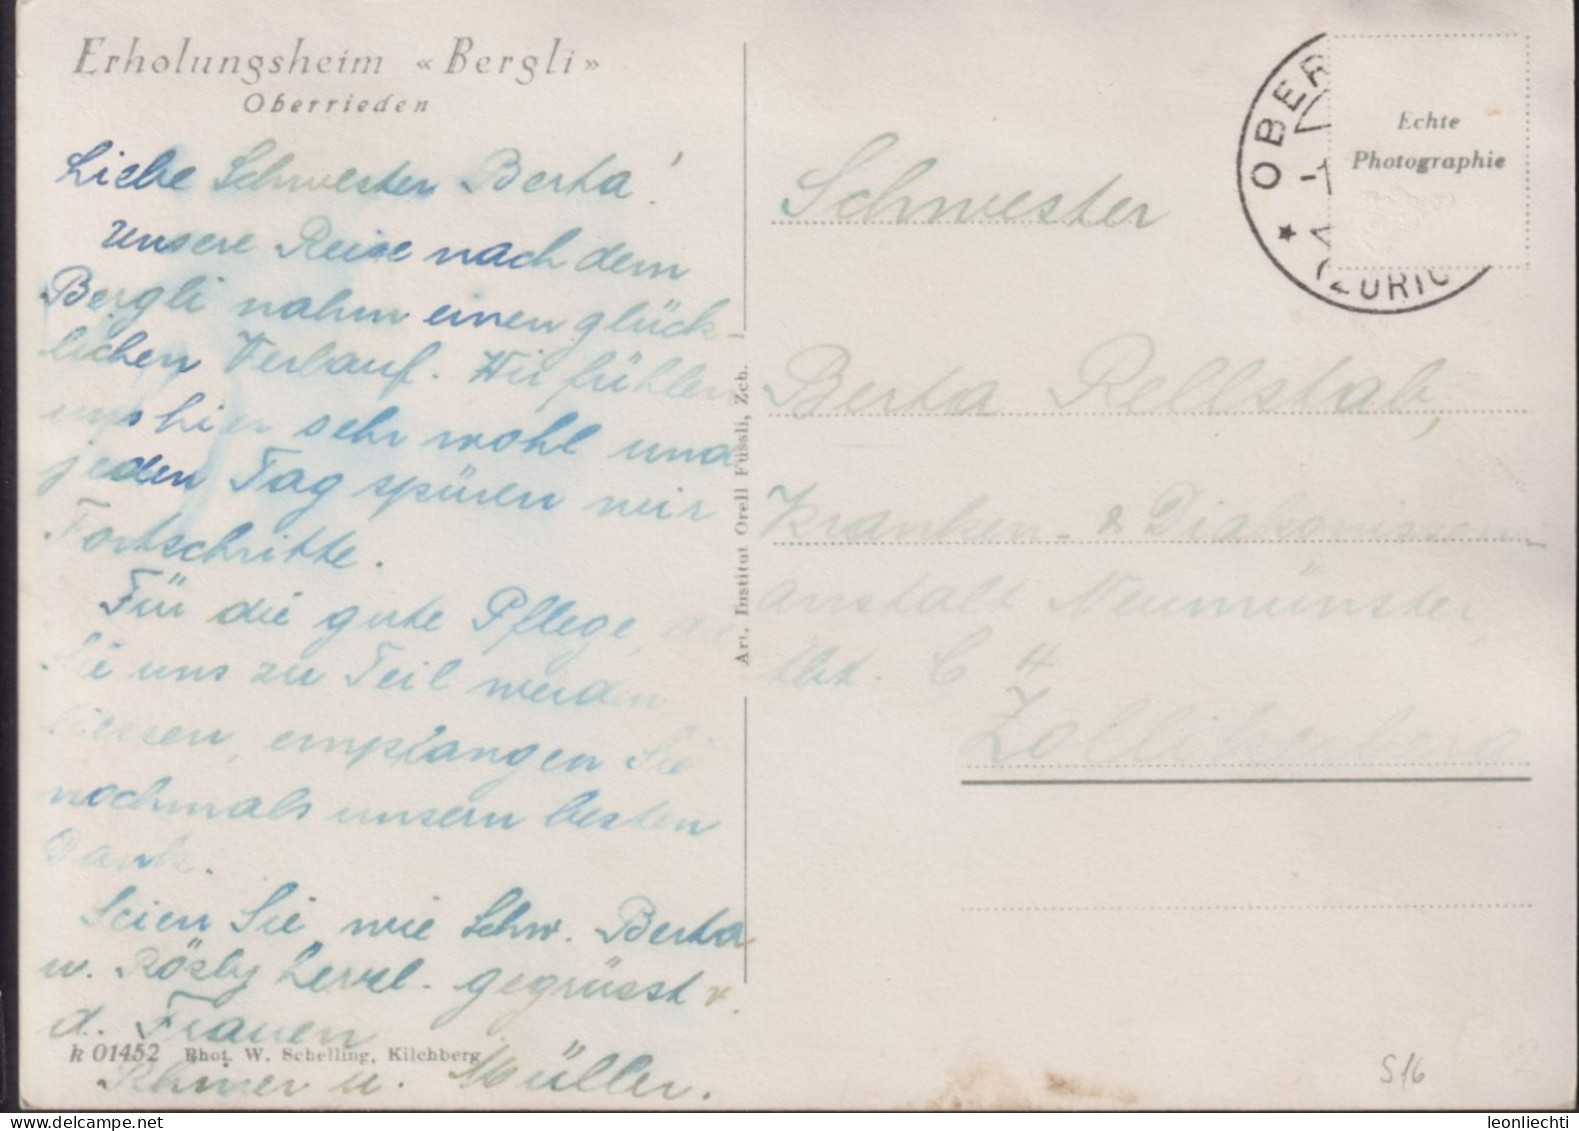 Erholungsheim «Bergli»
Oberrieden
Liebe Schwester Berta!
Unsere Reise nach dem
Bergli nahm einen glück-
lichen Verlauf. Wir fühlen
uns hier sehr wohl und
jeden Tag spüren wir
Fortschritte.
Für die gute Pflege, die
Sie uns zu Teil werden
liessen, empfangen Sie
nochmals unsern besten
Dank.
Seien Sie, wie Schw. Berta
u. Rösly herzl. gegrüsst v.
d. Frauen
u. Müller.
k 01452 Phot. W. Schelling, Kilchberg
Art. Institut Orell Füssli, Zch.
OBER
(ZÜRIC
Echte
Photographie
Schwester
Berta Rellstab,
Kranken- & Diakonissen-
anstalt Neumünster,
Abt. C 4
Zollikerberg
S16
leonliechti